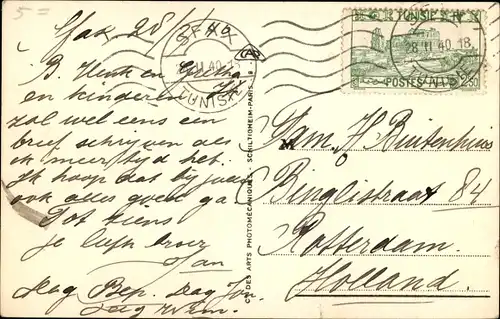 5=
Sfax 28/
B. Henk en Geetha
en kinderen
zal wel eens een
brief schrijven als
ik meer tijd heb.
Ik hoop dat bij jou
ook alles goed ga
Tot ziens
je liefh broer
Jan
Dag Bep. Dag Jan.
Dag Wim.
SFAX
II 40
TUNISIE
CIE DES ARTS PHOTOMÉCANIQUES - SCHILTIGHEIM-PARIS
TUNISIE
28 II 40 18
POSTES
2,50
Fam. H Buitenhuis
Binglistraat 84
Rotterdam.
Holland.